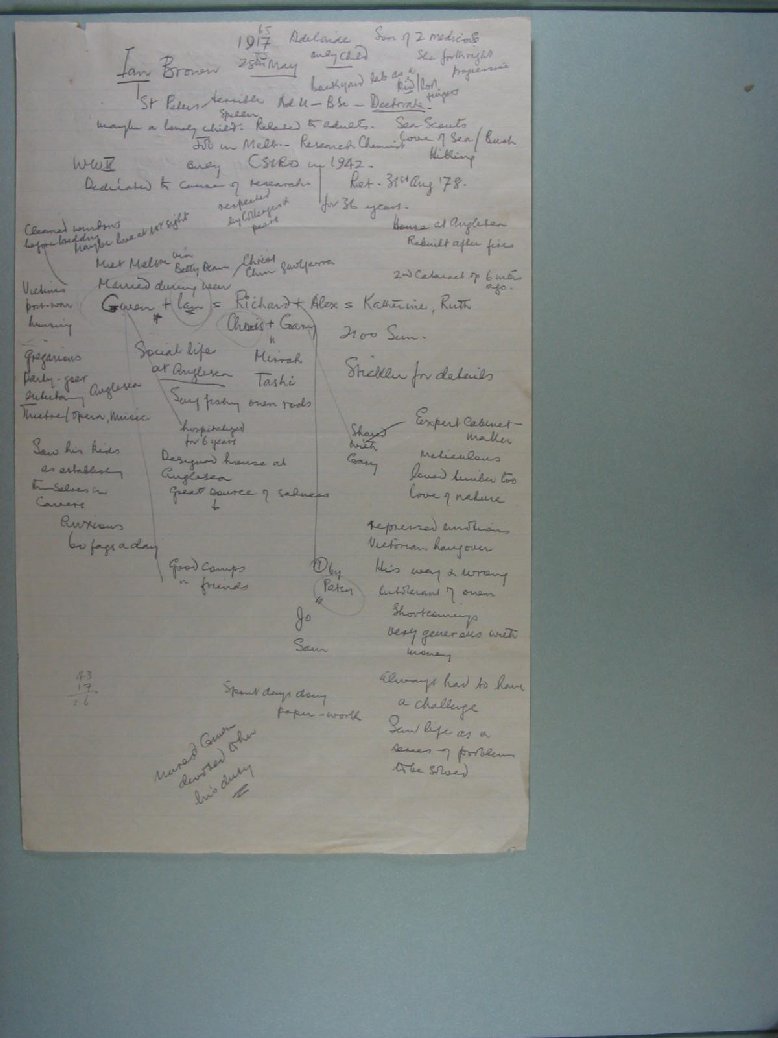 1917 65 Adelaide Son of 2 medicos
Ian Brown 25th May only child She forthright
progressive
backyard lab as a kid
St Peters terrible speller Ad U - BSc - Doctorate.
maybe a lonely child. Related to adults. Sea Scouts
Job in Melb - Research Chemist Love of Sea / Bush
Hiking
WW II CSIRO in 1942.
Dedicated to cause of research Ret. 31st Aug '78.
respected by colleagues & peers
for 36 years.
Cleaned windows before wedding
Maybe love at 1st sight
House at Anglesea
Rebuilt after fire
Met Melba via Betty
Married during war
2nd Cataract op 6 mths ago.
Victorias
post-war
housing
Gwen + Ian = Richard + Alex = Katherine, Ruth
Chris + Gary
2100 Sun.
Mirrah
Tashi
Gregarious
Party-goer
entertaining Anglesea
Theatre / Opera, Music
Social life
at Anglesea
Stickler for details
Surf fishing own rods
hospitalized
for 6 years
Shared
with
Gary
Expert Cabinet-
maker
Meticulous
loved timber too
love of nature
Saw his kids
as establishing
themselves in
Careers
Designed house at
Anglesea
Great source of sadness
Anxious
60 fags a day
repressed emotions
Victorian hangover
Good camps
" friends
by
Peter
His way or wrong
intolerant of own
Shortcomings
very generous with
money
Jo
Sam
43
17
26
Spent days doing
paper-work
Always had to have
a challenge
Saw life as a
series of problems
to be solved
Nursed Gwen
devoted
his duty